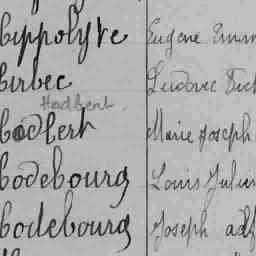 hippolyte Eugène Emm
hirbec Ludovic
Hodbert
hodbert Marie Joseph
hodebourg Louis Julien
hodebourg Joseph adl